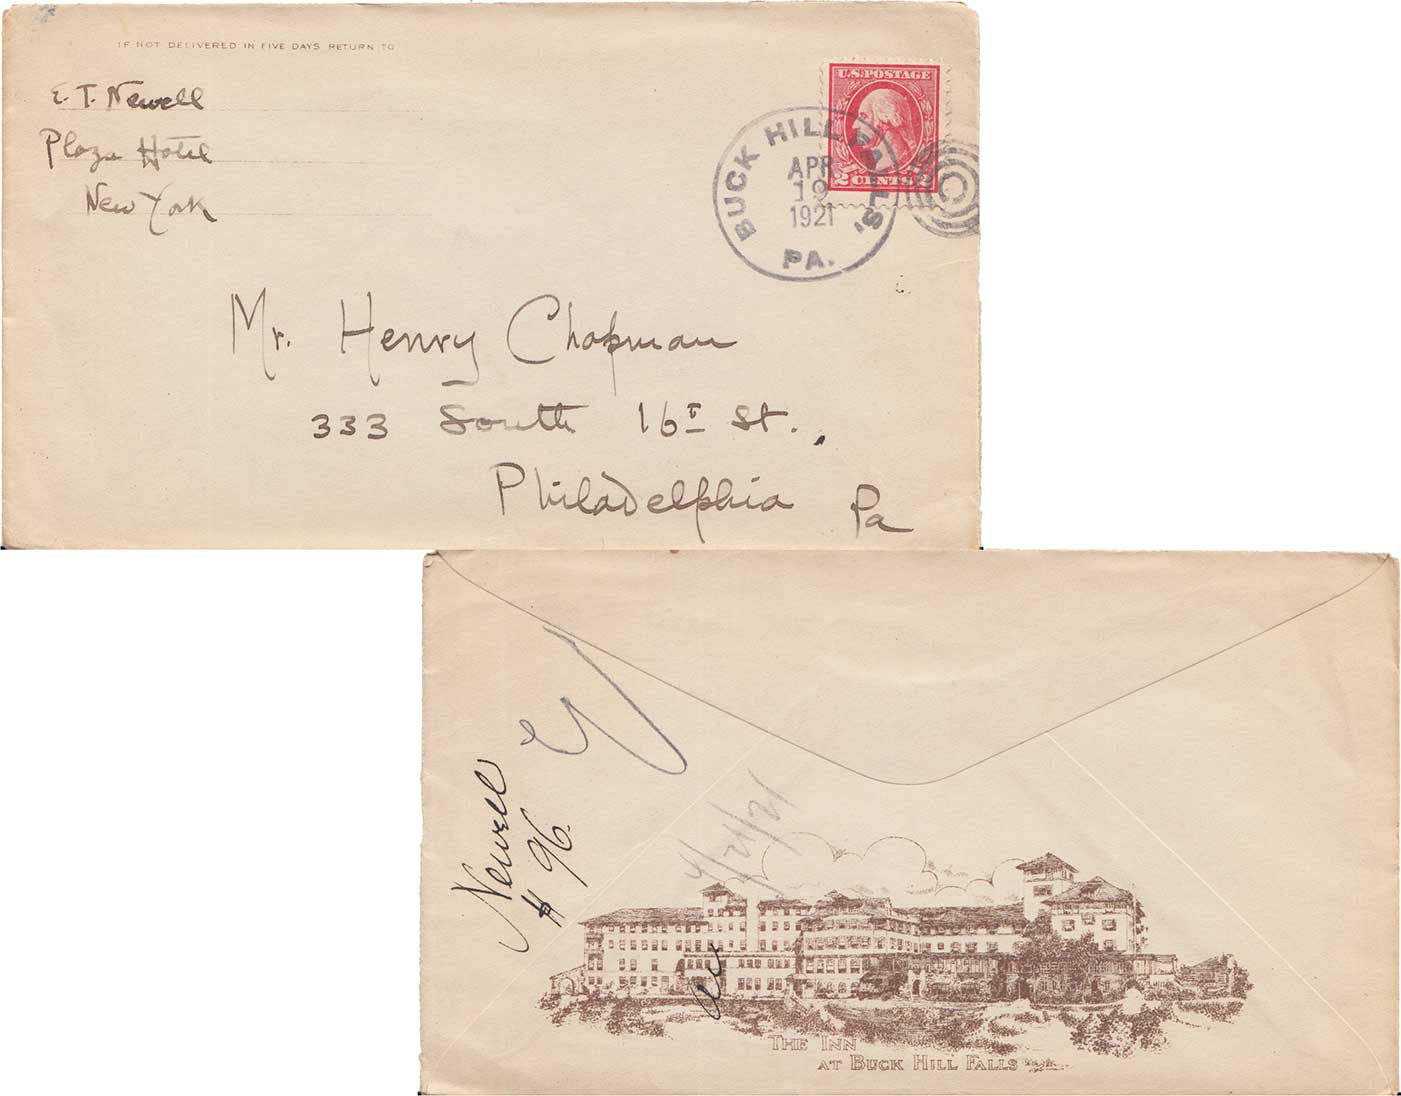 IF NOT DELIVERED IN FIVE DAYS RETURN TO
E. T. Newell
Plaza Hotel
New York
U.S. POSTAGE
2 CENTS 2
BUCK HILL FALLS,
APR
19
1921
PA.
Mr. Henry Chapman
333 South 16th St.,
Philadelphia Pa
Newell
# 96.
4/21/21
THE INN
AT BUCK HILL FALLS